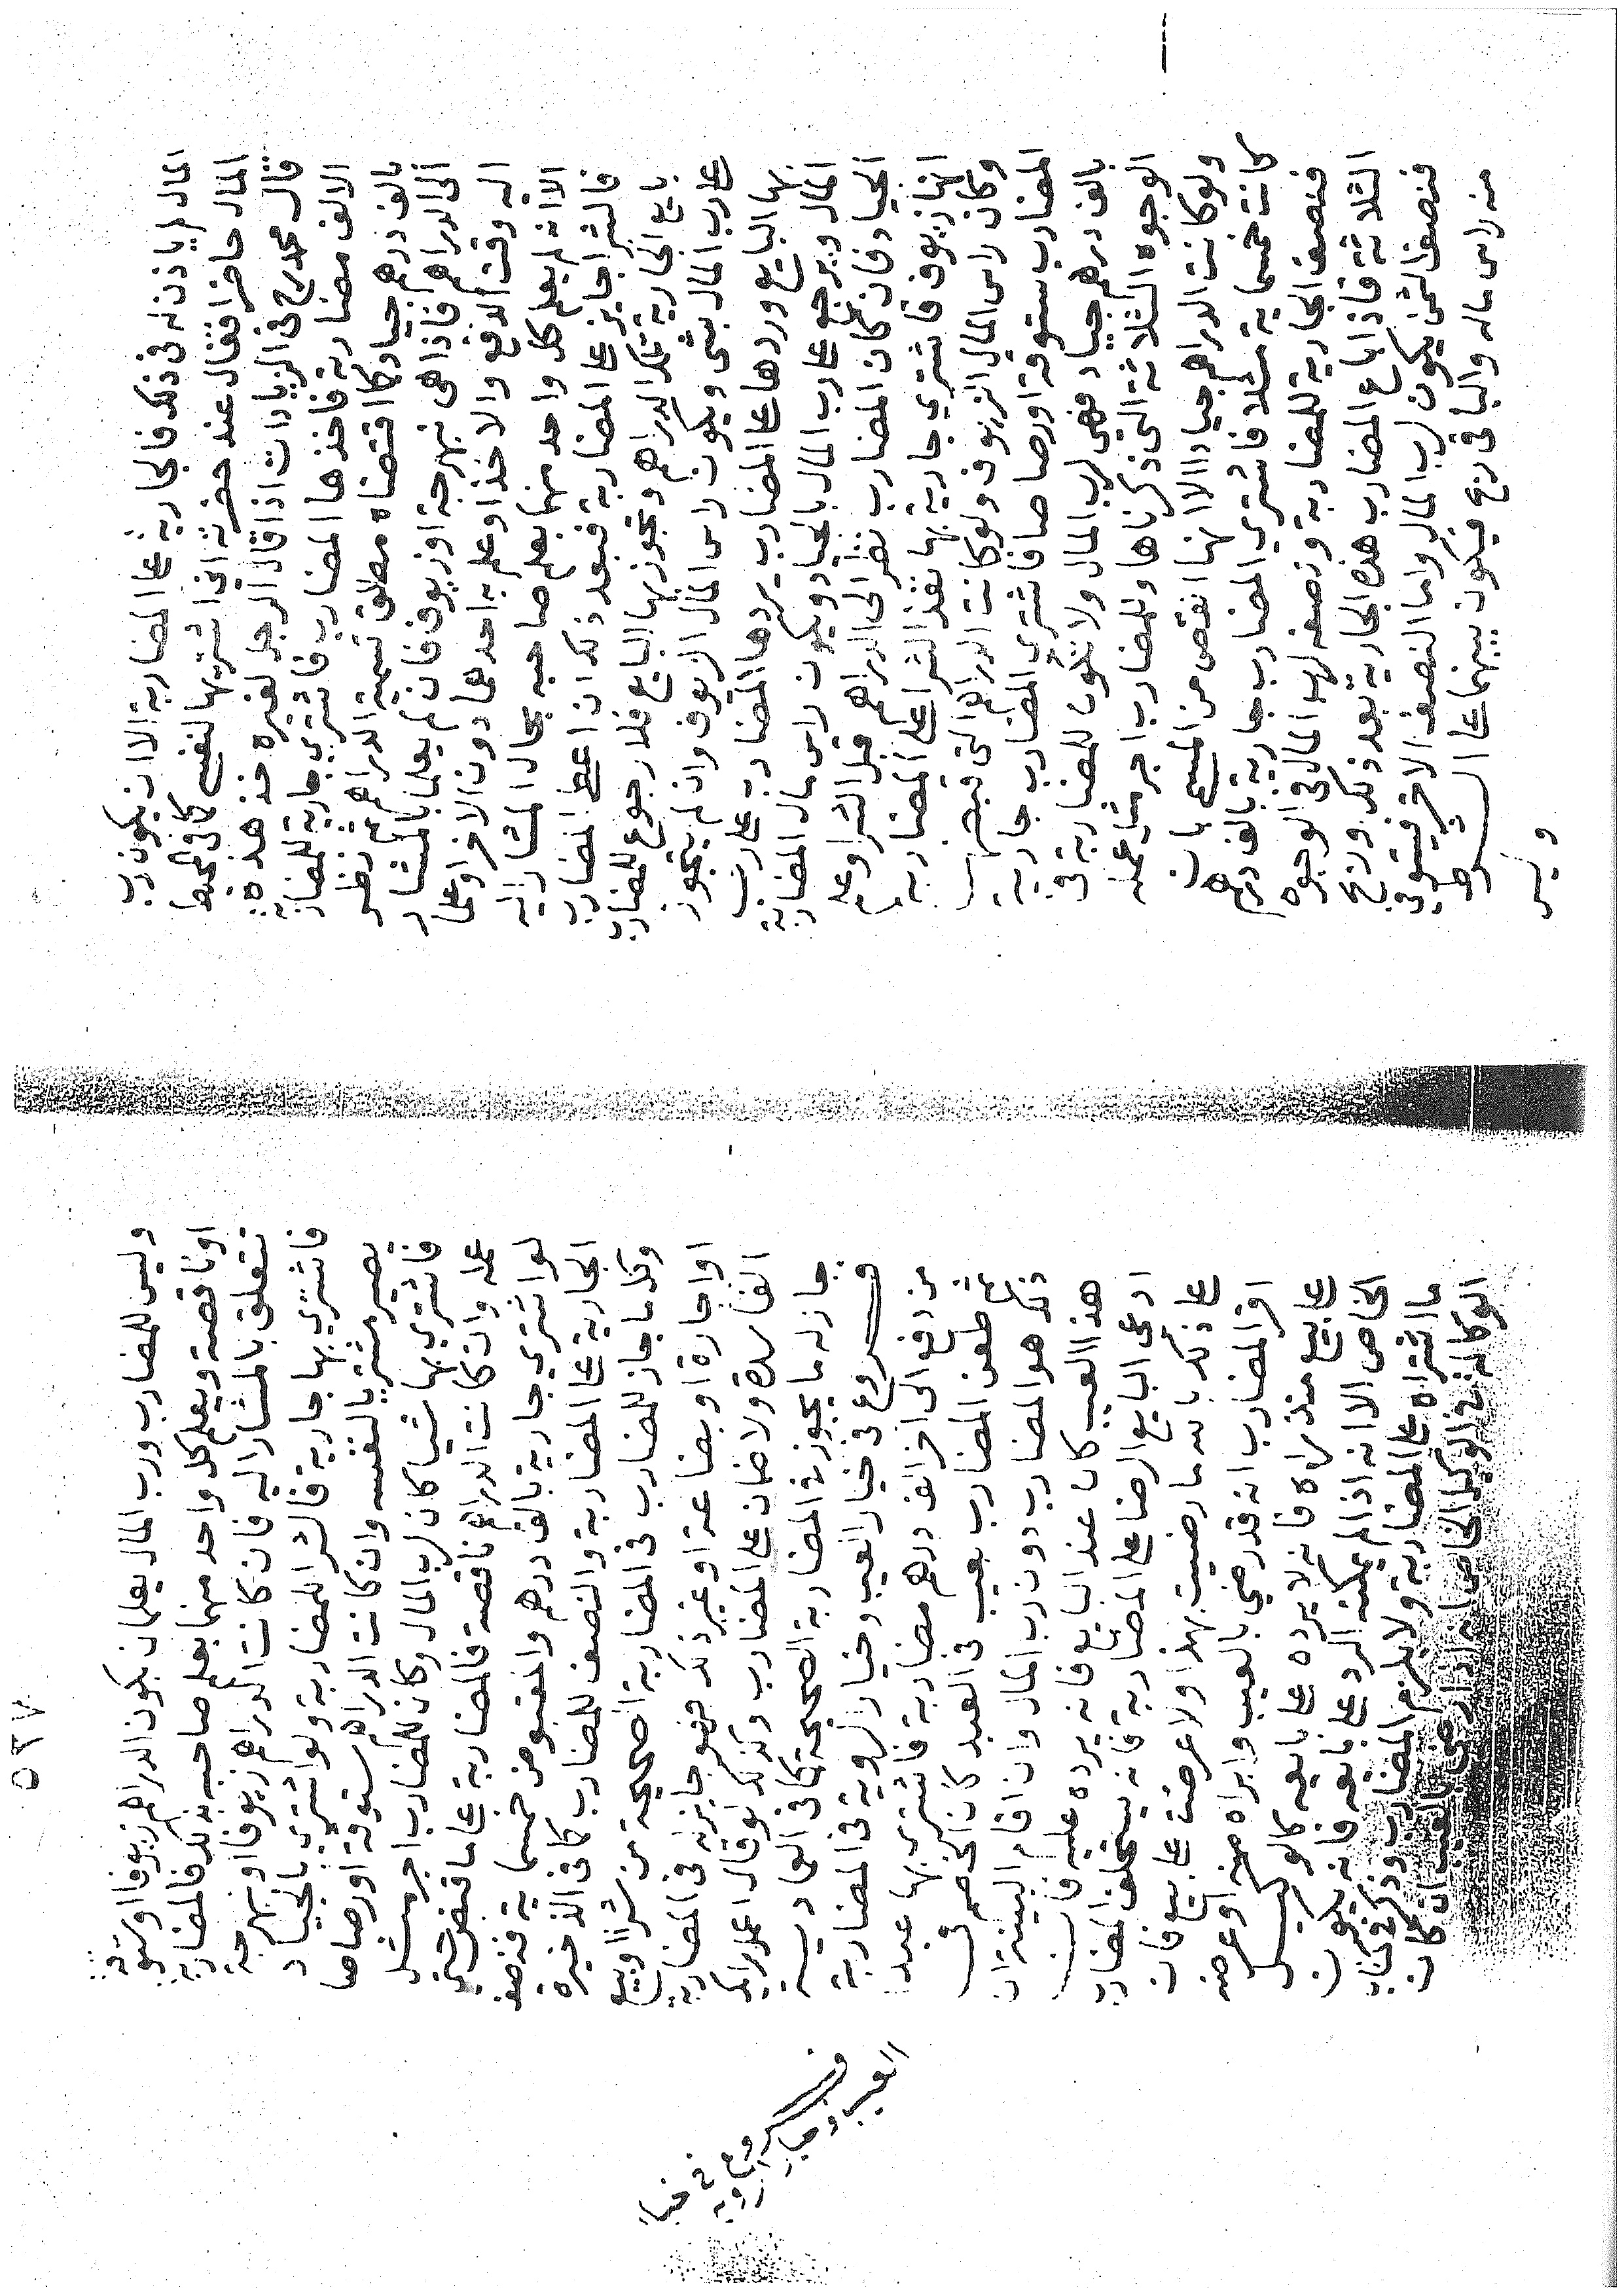 المال لم ياذن له في ذلك فالجارية على المضاربة الا ان يكون رب
المال حاضرا فقال عند حضرته اني اشتريها لنفسي كذا في المحيط
قال محمد رح في الزيادات اذا قال الرجل لغيره خذ هذه
الالف مضاربة فاخذها المضارب فاشترى جارية للمضاربة
بالف درهم جياد كما اقتضاه مطلق تسمية الدراهم ثم نظر
الى الدراهم فاذا هي نبهرجة او زيوف فان لم يعلما بالمشار
اليه وقت الدفع والاخذ او علم به احدهما دون الاخر او علما
الا انه لم يعلم كل واحد منهما بعلم صاحبه بحال المشار اليه
فالشرا جايز على المضاربة فبعد ذلك ان اعطى المضارب
بايع الجارية تلك الدراهم وتجوز بها البايع فلا رجوع للمضارب
على رب المال بشي ويكون راس المال الزيوف وان لم يتجوز
بها البايع وردها على المضارب يردها المضارب على رب
المال ويرجع على رب المال بالجياد ويكون راس مال المضاربة
الجياد فان كان المضارب نظر الى الدراهم قبل الشرا وعلم
انها زيوف فاشترى جارية بها نفذ الشرا على المضاربة
وكان راس المال الزيوف ولو كانت الدراهم التي قبضها
المضارب ستوقة او رصاصا فاشترى المضارب جارية
بالف درهم جياد فهي لرب المال ولا تكون للمضاربة في
الوجوه الثلاثة التي ذكرناها وللمضارب اجر مثل عمله
ولو كانت الدراهم جيادا الا انها انقص من المسمى بان
كانت خمسماية مثلا فاشترى المضارب جارية بالف درهم
فنصف الجارية للمضاربة ونصفه لرب المال في الوجوه
الثلاثة فاذا باع المضارب هذه الجارية بعد ذلك وربح
فنصف الثمن يكون لرب المال واما النصف الاخر فيستوفي
منه راس ماله والباقي ربح فيكون بينهما على الشرط
وليس
٥٢٧
وليس للمضارب ورب المال يعلمان بكون الدراهم زيوفا او ستوقة
او ناقصة ويعلم كل واحد منهما بعلم صاحبه بذلك فالمضاربة
تتعلق بالمشار اليه فان كانت الدراهم زيوفا او نبهرجة
فاشترى بها جارية فالشرا للمضاربة ولو اشترى بالجياد
يصير مشتريا لنفسه وان كانت الدراهم ستوقة او رصاصا
فاشترى بها شيا كان لرب المال وكان للمضارب اجر مثل
عمله وان كانت الدراهم ناقصة فالمضاربة على ما قبض حتى
لو اشترى جارية بالف درهم والمقبوض خمسماية فنصف
الجارية على المضاربة والنصف للمضارب كذا في الذخيرة
وكل ما جاز للمضارب في المضاربة الصحيحة من شرا او بيع
او اجارة او بضاعة او غير ذلك فهو جايز له في المضاربة
الفاسدة ولا ضمان على المضارب وكذلك لو قال اعمل برايك
جاز له ما يجوز في المضاربة الصحيحة كذا في الحاوي
فروع في خيار العيب وخيار الروية في المضاربة
من دفع الى اخر الف درهم مضاربة فاشترى بها عبدا
ثم طعن المضارب بعيب في العبد كان الخصم في
ذلك هو المضارب دون رب المال وان اقام البينة ان
هذا العيب كان عند البايع فانه يرده عليه فان
ادعى البايع الرضا على المضاربة فانه يستحلف المضارب
على ذلك بالله ما رضيت بهذا ولا عرضت على بيع فان
اقر المضارب انه قد رضي بالعيب وابراه منه او عرضه
على بيع منذ راه فانه لا يرده على بايعه كالوكيل
الخاص الا انه اذا لم يمكنه الرد على بايعه فانه يكون
ما اشتراه على المضاربة ولا يلزم المضارب وذكر في كتاب
الوكالة في الوكيل الخاص انه اذا رضي بالعيب ان كان
فروع في خيار
العيب وخيار الروية